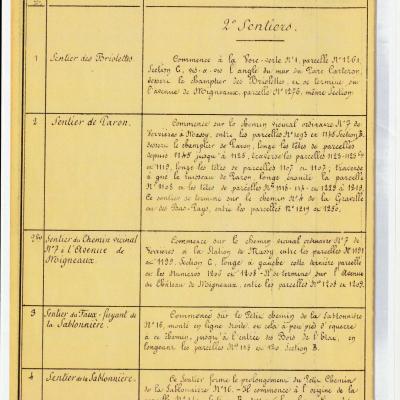 2º Sentiers.
1
Sentier des Briolettes
Commence à la Voie-verte Nº1, parcelle Nº1261,
Section C, vis-à-vis l'angle du mur du Parc Carteron,
dessert le champtier des Briolettes et se termine sur
l'avenue de Migneaux, parcelle Nº1276, même Section
2
Sentier de Paron.
Commence sur le chemin vicinal ordinaire Nº7 de
Verrières à Massy, entre les parcelles Nº1093 et 1145 Section B,
dessert le champtier de Paron, longe les têtes de parcelles
depuis 1145 jusqu'à 1125, traverse les parcelles 1123-1125
et 1119, longe les têtes de parcelles 1117 et 1107; traverse
à gué le ruisseau de Paron longe ensuite la parcelle
Nº1105 et les têtes de parcelles
Ce sentier se termine sur le chemin Nº4 de la Gravelle
ou des Bas-Pays, entre les parcelles Nº1219 et 1256.
2bis
Sentier du Chemin vicinal
Nº7 à l'Avenue de
Migneaux
Commence sur le chemin vicinal ordinaire Nº7 de
Verrières à la Station de Massy entre les parcelles Nº1191
et 1199, Section C, longe à gauche cette dernière parcelle
et les Numéros 1206 et 1208 - Il se termine sur l'Avenue
du Château de Migneaux, entre les parcelles Nº1208 et 1209.
3
Sentier du Faux-fuyant de
la Sablonnière.
Commence sur le Petit chemin de la Sablonnière
Nº16, monte en ligne droite et cela à peu près d'équerre
à ce chemin, jusqu'à l'entrée des Bois de l'Etat, en
longeant les parcelles Nº et 120 Section B.
4
Sentier de la Sablonnière.
Ce Sentier forme le prolongement du Petit Chemin
de la Sablonnière Nº16. - Il commence à l'origine de la